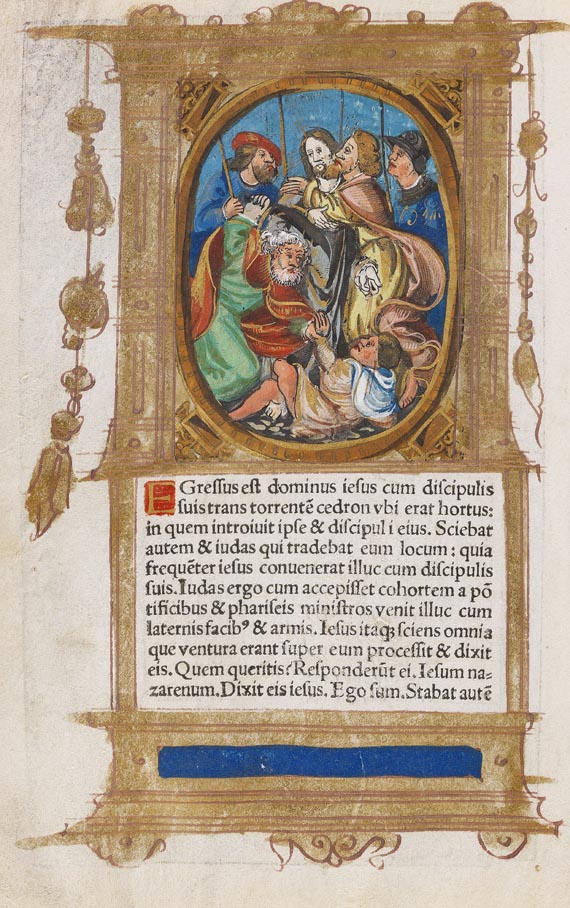 EGressus est dominus iesus cum discipulis
suis trans torrentē cedron vbi erat hortus:
in quem introiuit ipse & discipul i eius. Sciebat
autem & iudas qui tradebat eum locum: quia
frequēter iesus conuenerat illuc cum discipulis
suis. Iudas ergo cum accepisset cohortem a pō
tificibus & phariseis ministros venit illuc cum
laternis facibꝰ & armis. Iesus itaqꝫ sciens omnia
que ventura erant super eum processit & dixit
eis. Quem queritis? Responderūt ei. Iesum na=
zarenum. Dixit eis iesus. Ego sum. Stabat autē